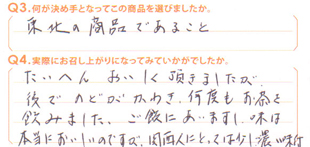 Q3.何が決め手となってこの商品を選びましたか。
東北の商品であること
Q4.実際にお召し上がりになってみていかがでしたか。
たいへん おいしく頂きましたが、
後でのどがかわき、何度もお茶を
飲みました、ご飯にあいますし、味は
本当においしいのですが、関西人にとっては少し濃い味付